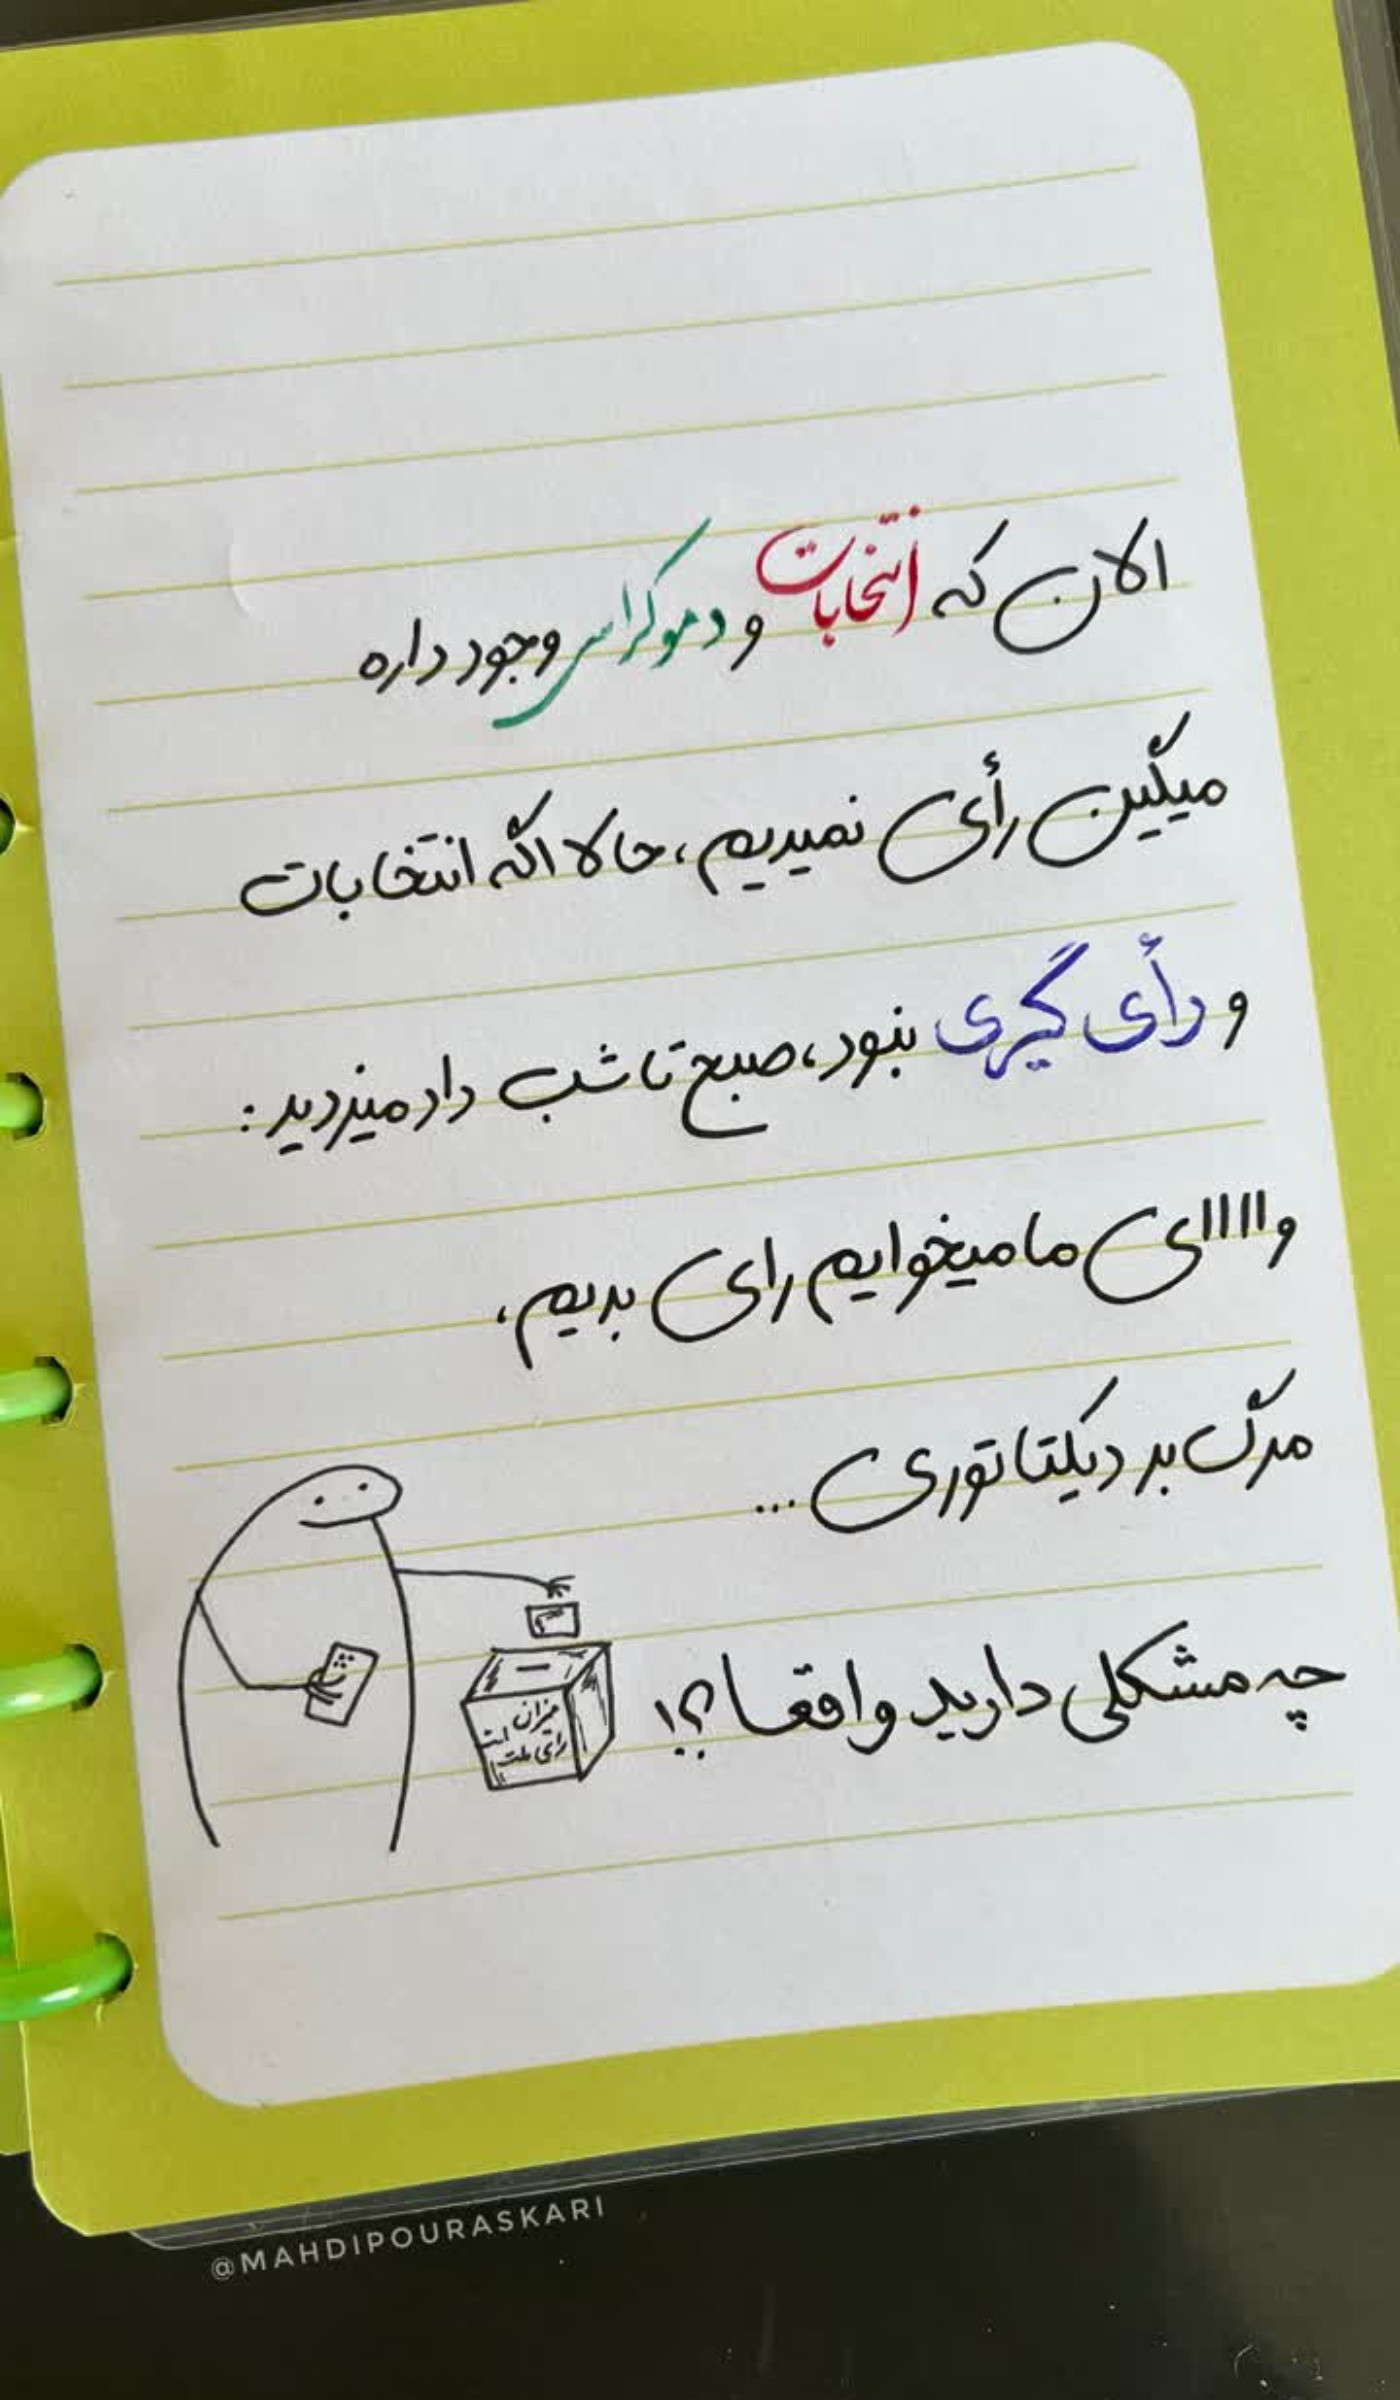 الان که انتخابات و دموکراسی وجود داره
میگین رأی نمیدیم، حالا اگه انتخابات
و رأی گیری نبود، صبح تا شب داد میزدید :
واااای ما میخوایم رای بدیم،
مرگ بر دیکتاتوری ...
چه مشکلی دارید واقعا ؟!
میزان
رای ملت است
@MAHDIPOURASKARI